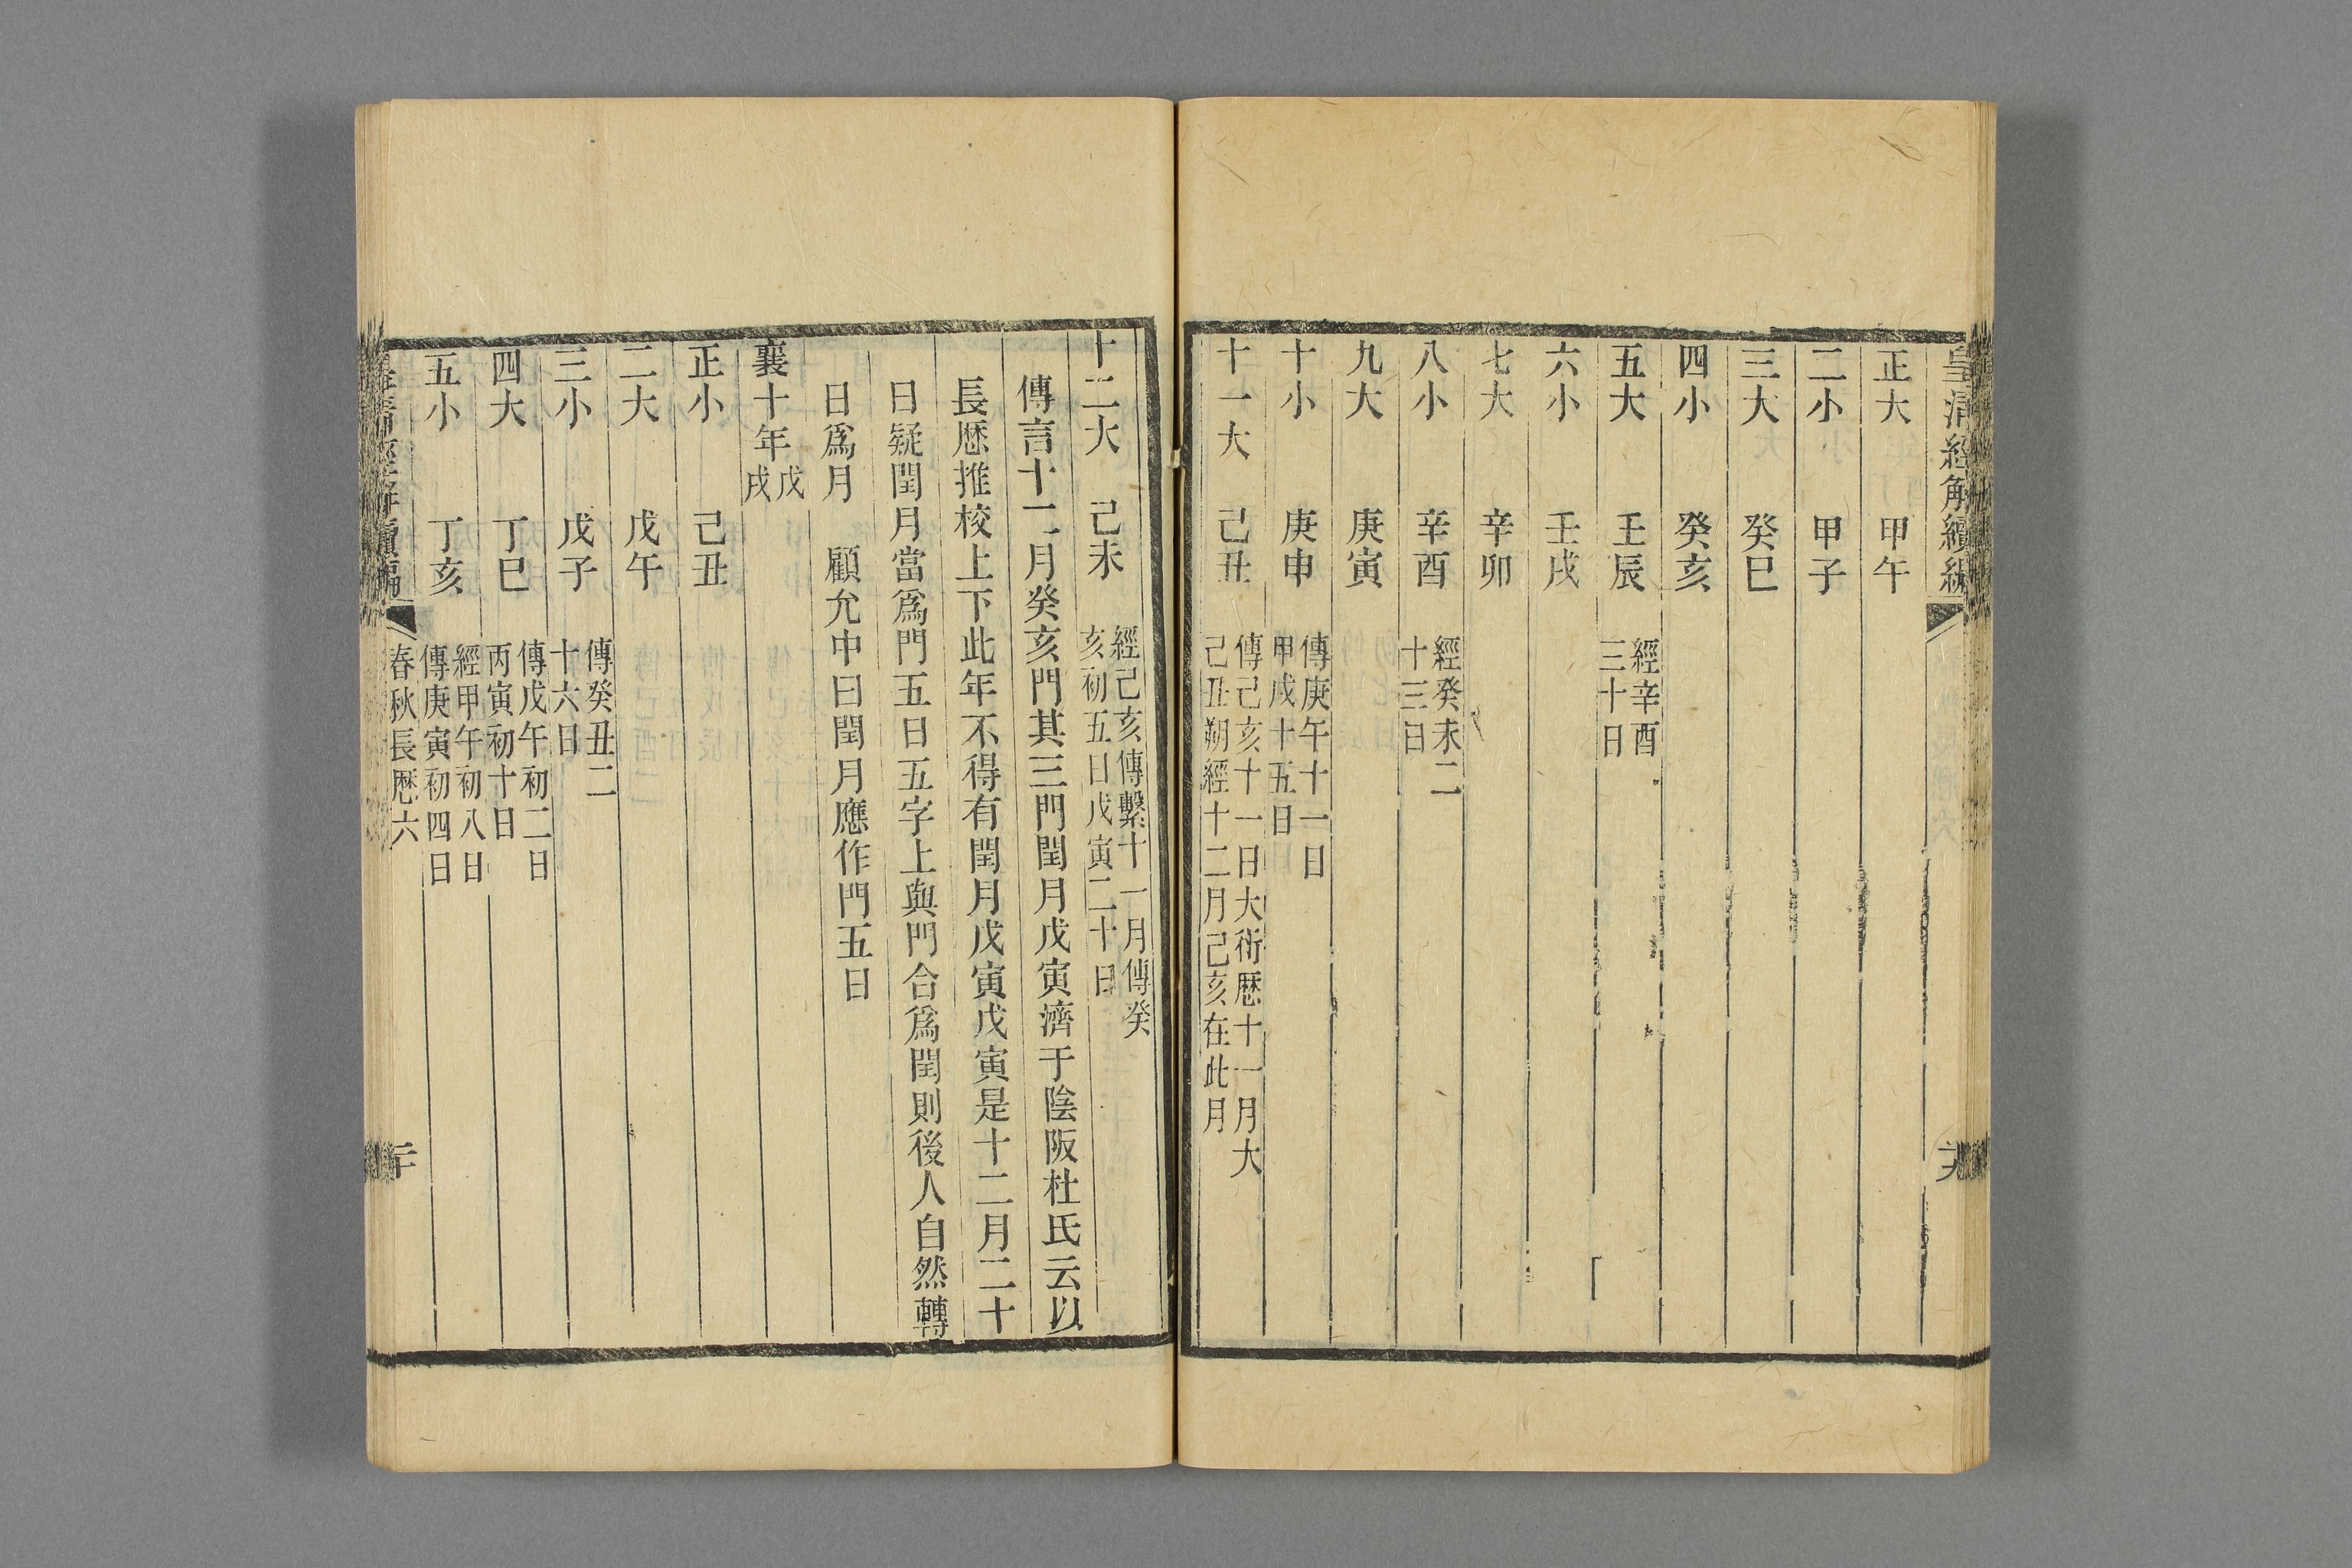 皇清經解續編
正大 甲午
二小 甲子
三大 癸巳
四小 癸亥
五大 壬辰 經辛酉
三十日
六小 壬戌
七大 辛卯
八小 辛酉 經癸未二
十三日
九大 庚寅
十小 庚申 傳庚午十一日
甲戌十五日
十一大 己丑 傳己亥十一日大衍厯十一月大
己丑朔經十二月己亥在此月
十二大 己未 經己亥傳繫十一月傳癸
亥初五日戊寅二十日
傳言十二月癸亥門其三門閏月戊寅濟于陰阪杜氏云以
長厯推校上下此年不得有閏月戊寅戊寅是十二月二十
日疑閏月當爲門五日五字上與門合爲閏則後人自然轉
日爲月 顧允中曰閏月應作門五日
襄十年戊
戌
正小 己丑
二大 戊午
三小 戊子 傳癸丑二
十六日
四大 丁巳 傳戊午初二日
丙寅初十日
五小 丁亥 經甲午初八日
傳庚寅初四日
皇清經解續編
春秋長厯六